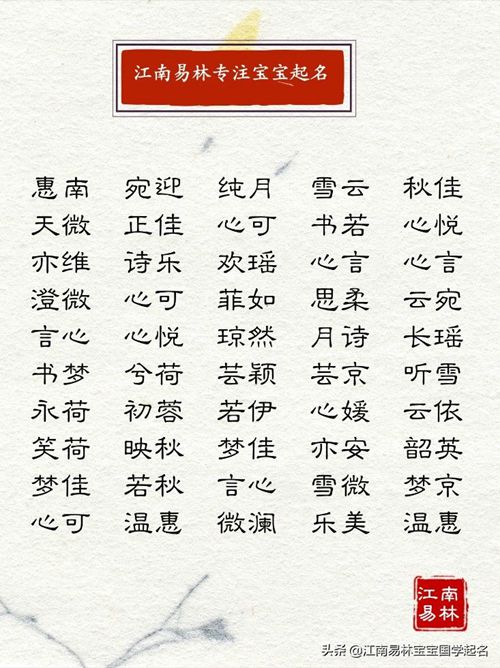 江南易林专注宝宝起名
惠南 宛迎 纯月 雪云 秋佳
天微 正佳 心可 书若 心悦
亦维 诗乐 欢瑶 心言 心言
澄微 心可 菲如 思柔 云宛
言心 心悦 琼然 月诗 长瑶
书梦 兮荷 芸颖 芸京 听雪
永荷 初蓉 若伊 心媛 云依
笑荷 映秋 梦佳 亦安 韶英
梦佳 若秋 言心 雪微 梦京
心可 温惠 微澜 乐美 温惠
江南
易林
头条 @江南易林宝宝国学起名